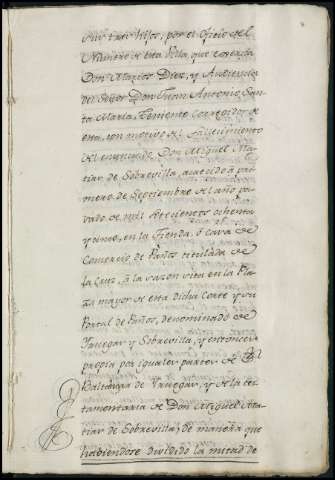 sus tres hijos; por el Oficio del
Numero de esta Villa, que exercía
Don Marcos Diez, y Audiencia
del Señor Don Juan Antonio San-
ta Maria, Teniente Corregidor de
esta, con motivo del fallecimiento
del enunciado Don Miguel Ma-
tiar de Sobrevilla, acaecido à pri-
mero de Septiembre del año pa-
sado de mil setecientos ochenta
y cinco, en la Tienda, ò casa de
Comercio de Paños titulada de
la Cruz, à la sazon sita en la Pla-
za mayor de esta dicha Corte y su
Portal de Paños, denominado de
Yanegas y Sobrevilla, y entonces
propia por iguales partes de Dn.
Baltasar de Yanegas, y de la tes-
tamentaria de Don Miguel Ma-
tiar de Sobrevilla; de manera que
habiendose dividido la mitad de